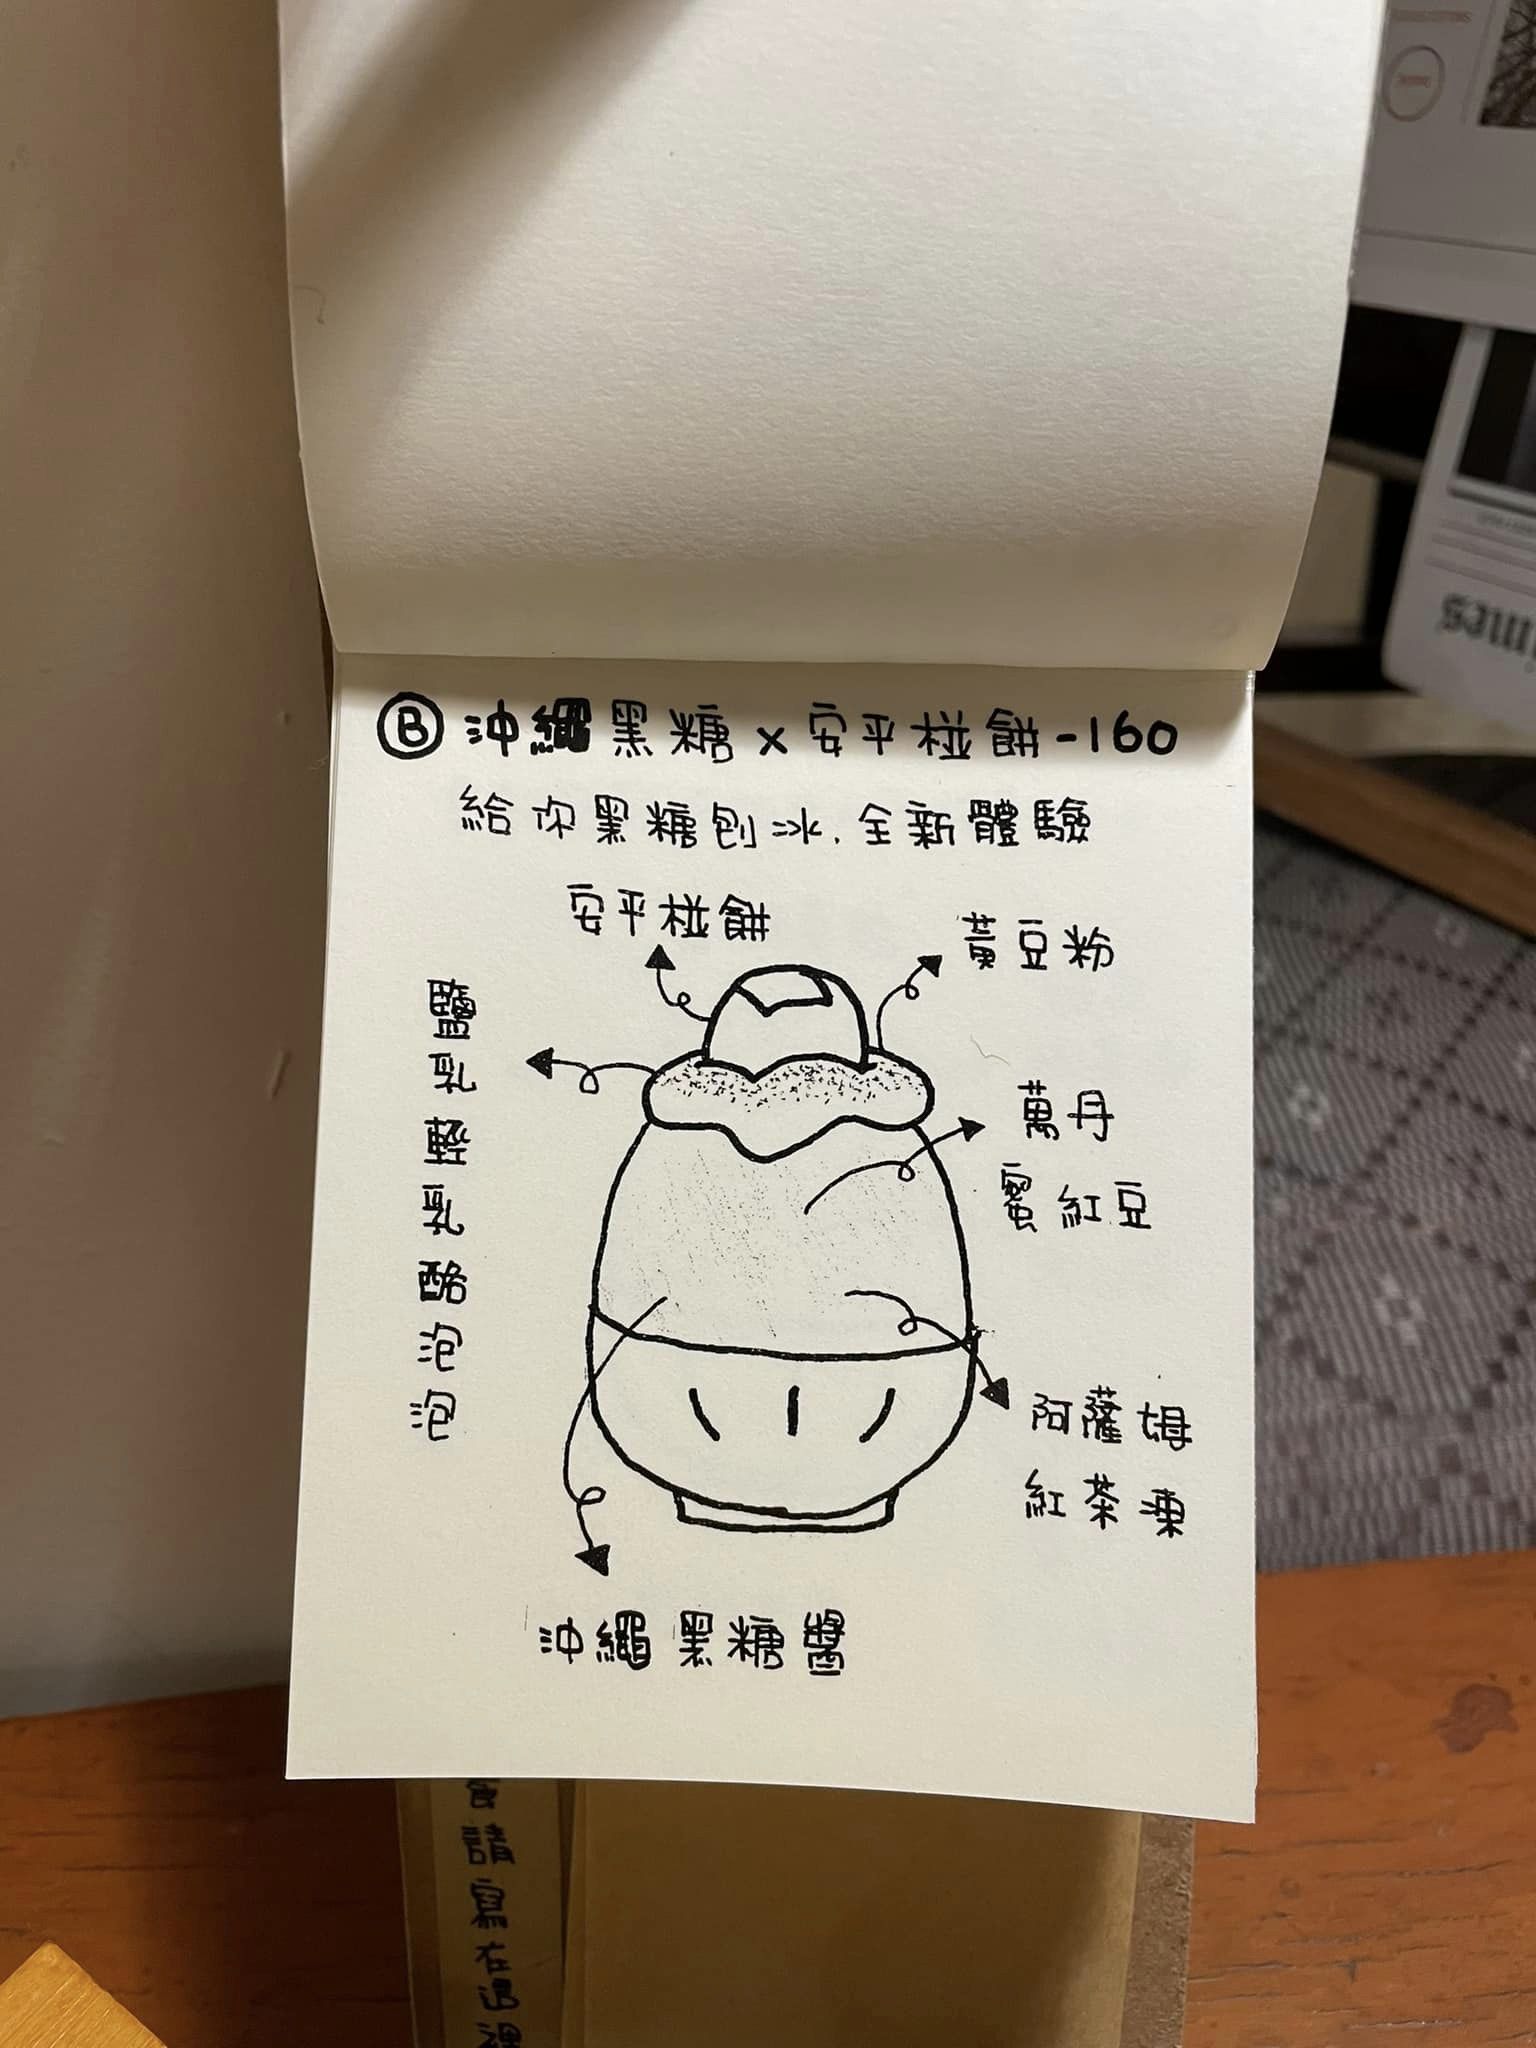 Ⓑ 沖繩黑糖 x 安平椪餅 -160
給你黑糖刨冰,全新體驗
安平椪餅
黃豆粉
鹽乳輕乳酪泡泡
萬丹
蜜紅豆
阿薩姆
紅茶凍
沖繩黑糖醬
請寫在這裡
imes